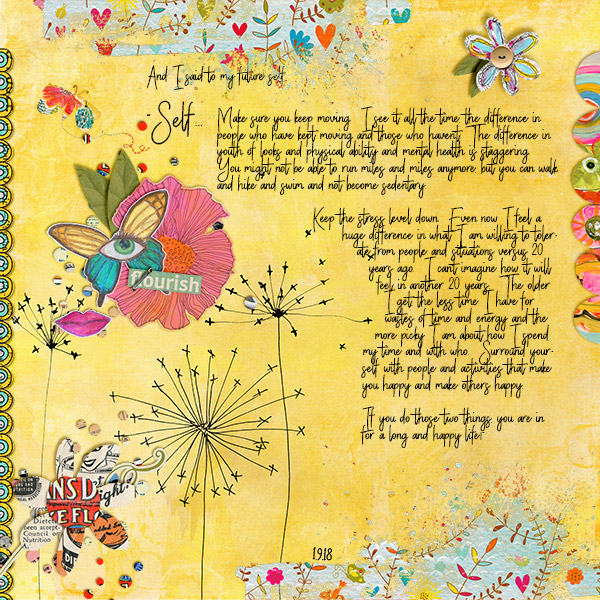 And I said to my future self
"Self...
Make sure you keep moving. I see it all the time-the difference in
people who have kept moving and those who havent. The difference in
youth of looks and physical ability and mental health is staggering.
You might not be able to run miles and miles anymore but you can walk
and hike and swim and not become sedentary.
Keep the stress level down. Even now I feel a
huge difference in what I am willing to toler-
ate from people and situations versus 20
years ago. I cant imagine how it will
feel in another 20 years. The older
I get the less time I have for
wastes of time and energy and the
more picky I am about how I spend
my time and with who. Surround your-
self with people and activities that make
you happy and make others happy.
If you do those two things, you are in
for a long and happy life."
flourish
NS D
ight
EFL
Dietet
been accept-
Council on
Nutrition
DIF
1.9.18